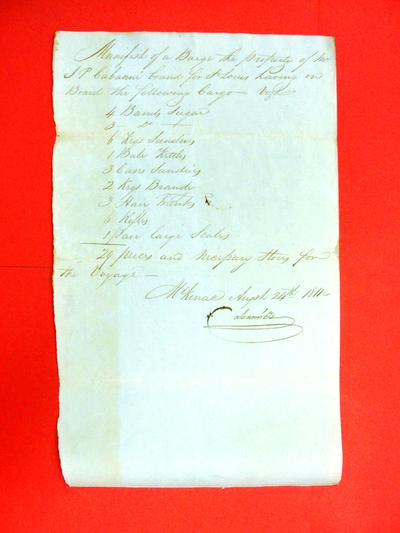 Manifest of a Barge the property of Mr
J P Cabanné bound for St Louis having on
Board the following Cargo —
4 Barrels Sugar
3 — Do —
6 Kegs Sundries
1 Bale Kettles
3 Cases Sundries
2 Kegs Brandi
3 Hair Trunks
6 Rifles
1 pair large Scales
29 pieces and nessesary Stores for
the Voyage —
McKenac Augst 24th 181
Cabanné